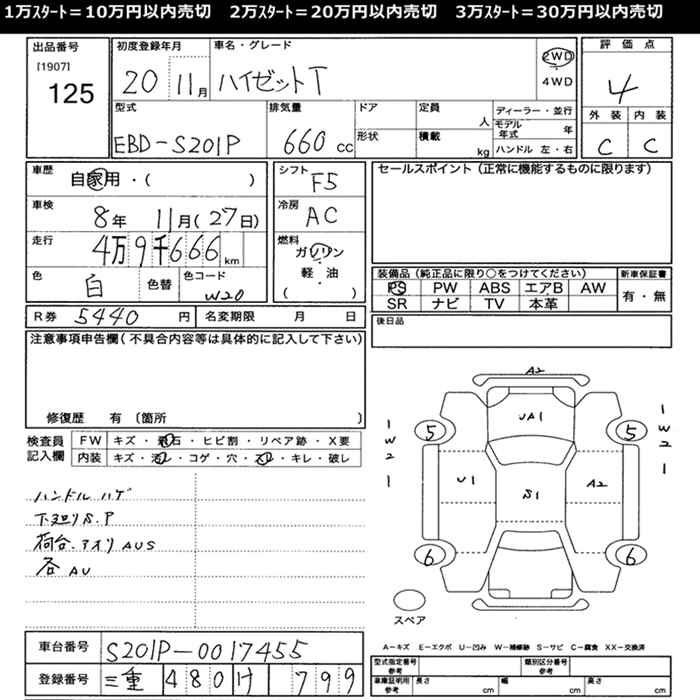 1万ｽﾀｰﾄ＝10万円以内売切　2万ｽﾀｰﾄ＝20万円以内売切　3万ｽﾀｰﾄ＝30万円以内売切
出品番号
[1907]
125
初度登録年月
20 11月
車名・グレード
ハイゼットT
2WD
4WD
評価点
4
外装 内装
C C
型式
EBD-S201P
排気量
660 cc
ドア
形状
定員
人
積載
kg
ディーラー・並行
モデル年式 年
ハンドル 左・右
車歴
自家用・( )
車検
8年 11月(27日)
走行
4万9千666 km
色
白
色替
色コード
W20
シフト
F5
冷房
AC
燃料
ガソリン
軽・油
( )
セールスポイント(正常に機能するものに限ります)
装備品(純正品に限り○をつけてください)
PS PW ABS エアB AW
SR ナビ TV 本革
新車保証書
有・無
R券 5440 円
名変期限 月 日
後日品
注意事項申告欄(不具合内容等は具体的に記入して下さい)
修復歴 有〔箇所 〕
検査員
記入欄
FW キズ・飛石・ヒビ割・リペア跡・X要
内装 キズ・汚レ・コゲ・穴・スレ・キレ・破レ
ハンドルハゲ
下廻りS.P
荷台.アオリAUS
各AU
A2
UA1
5 5
1W2
1W2
U1
S1
A2
6 6
スペア
A−キズ E−エクボ U−凹み W−補修跡 S−サビ C−腐食 XX−交換済
車台番号 S201P-0017455
登録番号 三重 480 け 799
型式指定番号
参考
類別区分番号
参考
車庫証明用
参考
長さ cm 幅 cm 高さ cm